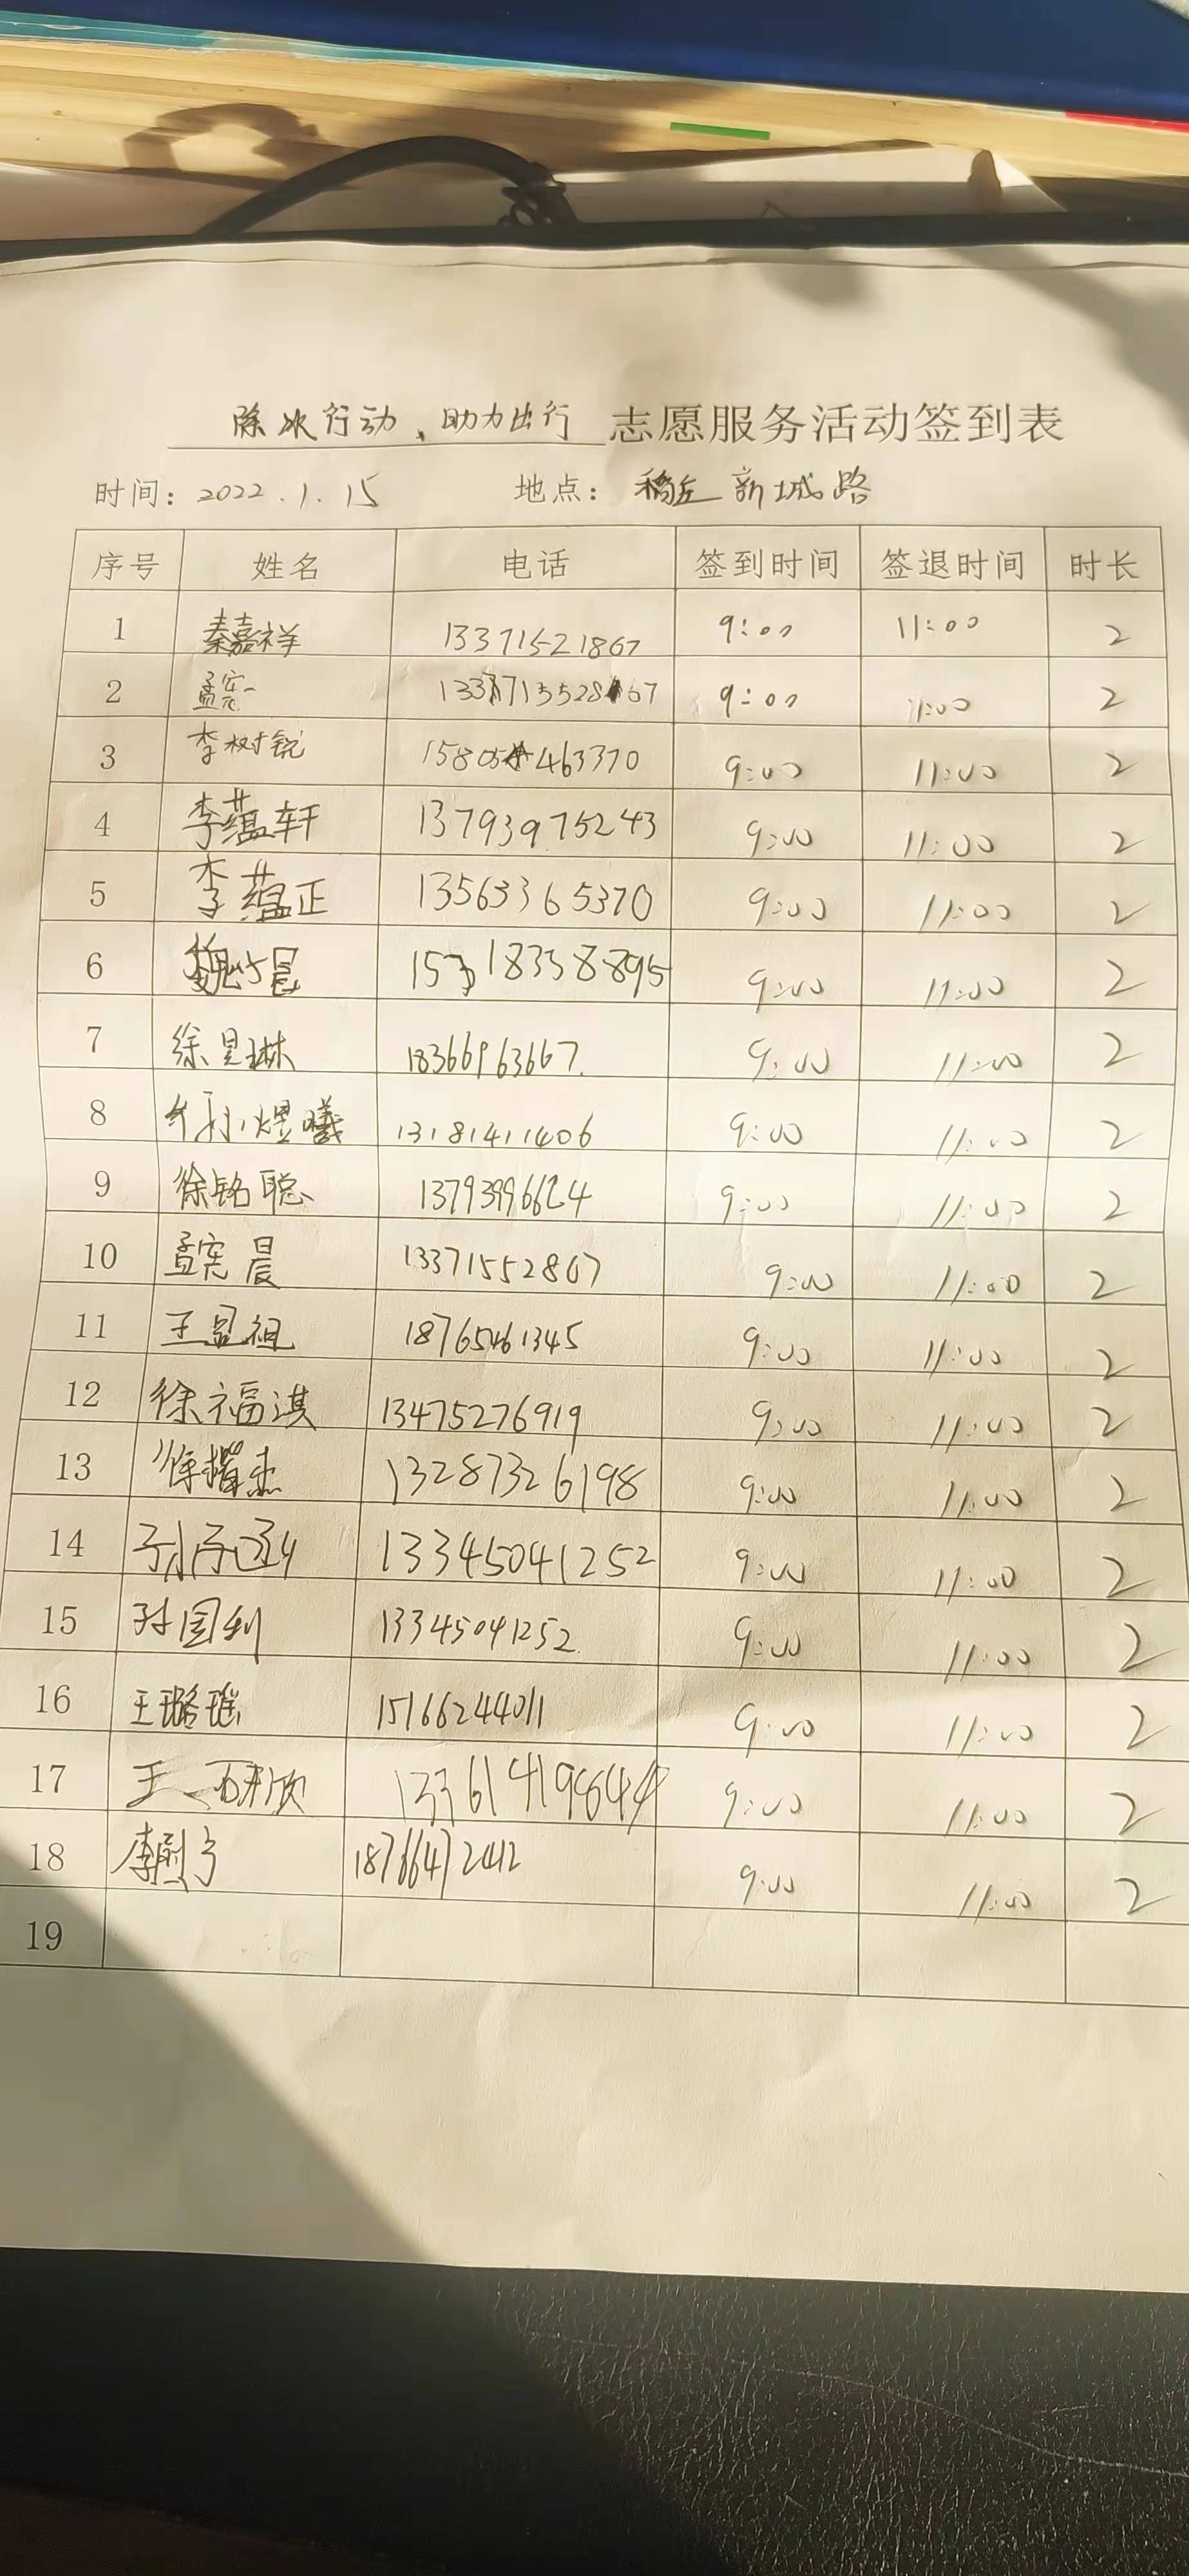 除冰行动、助力出行 志愿服务活动签到表
时间：2022.1.15 地点： 新城路
序号 姓名 电话 签到时间 签退时间 时长
1 秦嘉祥 13371521867 9:00 11:00 2
2 孟宪一 9:00 11:00 2
3 李树锐 9:00 11:00 2
4 李蕴轩 13793975243 9:00 11:00 2
5 李蕴正 13563365370 9:00 11:00 2
6 9:00 11:00 2
7 徐昱琳 18366963667 9:00 11:00 2
8 孙煜曦 13181411406 9:00 11:00 2
9 徐铭聪 13793996624 9:00 11:00 2
10 孟宪晨 13371552867 9:00 11:00 2
11 9:00 11:00 2
12 徐福淇 13475276919 9:00 11:00 2
13 13287326198 9:00 11:00 2
14 13345041252 9:00 11:00 2
15 孙国利 13345041252 9:00 11:00 2
16 王璐瑶 15166244011 9:00 11:00 2
17 13361419844 9:00 11:00 2
18 18766472412 9:00 11:00 2
19